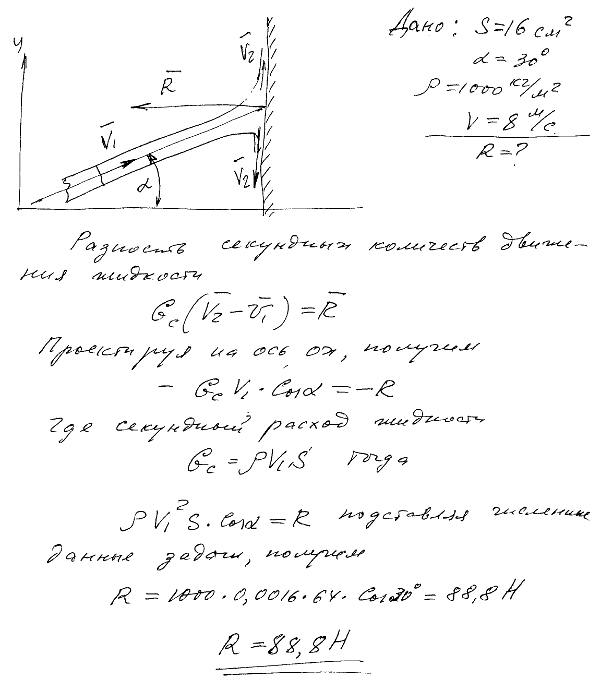 y
R̄
V̄₂
V̄₁
α
V̄₂
Дано: S=16 см²
α=30°
ρ=1000 кг/м²
V=8 м/с
R=?
Разность секундных количеств движе-
ния жидкости
Gc(V̄₂-V̄₁)=R̄
Проектируя на ось ox, получим
- GcV₁·Cosα=-R
где секундный расход жидкости
Gc=ρV₁S тогда
ρV₁²S·Cosα=R подставляя численные
данные задачи, получим
R=1000·0,0016·64·Cos30°=88,8H
R=88,8H